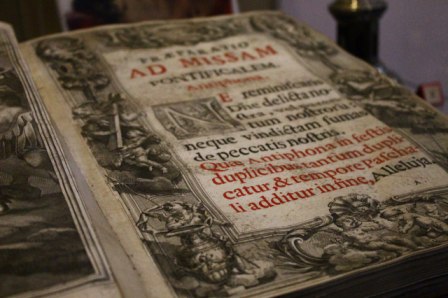 PRÆPARATIO
AD MISSAM
PONTIFICALEM
Antiphona.
NE reminiscaris
Dñe delicta no
stra,
nostrorum
neque vindictam sumas
de peccatis nostris.
Quæ Antiphona in festis
duplicibus tantum dupli
catur, & tempore Pascha
li additur in fine, Alleluja.